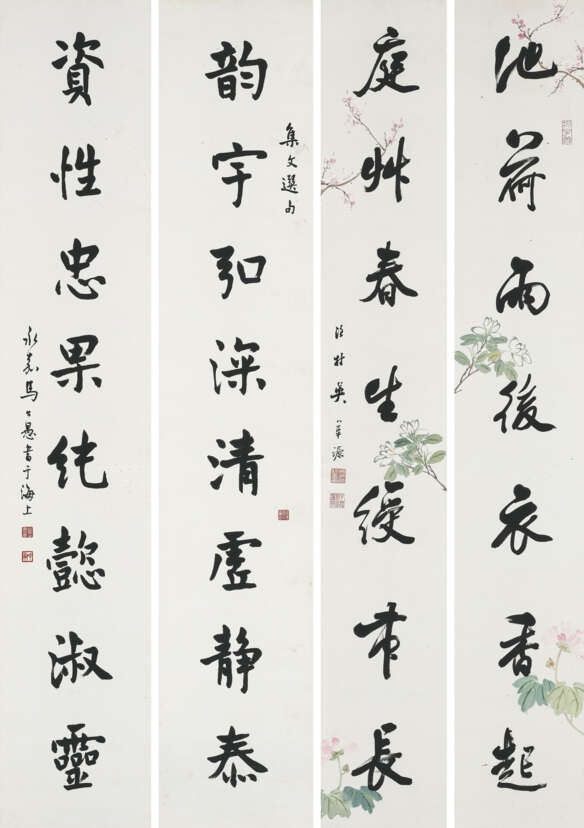 池荷雨後衣香起
庭艸春生綬帶長
漁村吳華源
集文選句
韵宇弘深清虛靜泰
資性忠果純懿淑靈
永嘉馬公愚書于海上